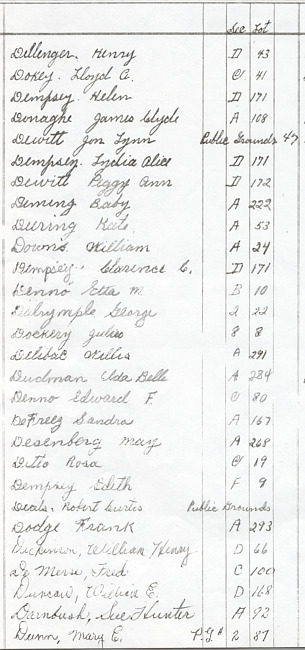 Sec Lot
Dellenger, Henry D 43
Dokey, Lloyd C. C 41
Dempsey, Helen D 171
Donaghe James Clyde A 108
Dewitt Jon Lynn Public Grounds 47
Dempsey, Lydia Alice D 171
Dewitt Peggy Ann D 172
Deming Baby A 222
Deering Kate A 53
Downs William A 24
Dempsey, Clarence C. D 171
Denno Etta M. B 10
Dalrymple George 2 22
Dockery Julius 8 8
Delibac Willis A 291
Dudman Ida Belle A 284
Denno Edward F. C 80
DeFreez Sandra A 167
Desenberg May A 268
Ditto Rosa C 19
Dempsey Edith F 9
Deals, Robert Curtis Public Grounds
Dodge Frank A 293
Dickinson, William Henry D 66
De Merse, Fred C 100
Duncan, William E. D 168
Darnbush, Sue Hunter A 92
Dunn, Mary E. P.G# 2 87